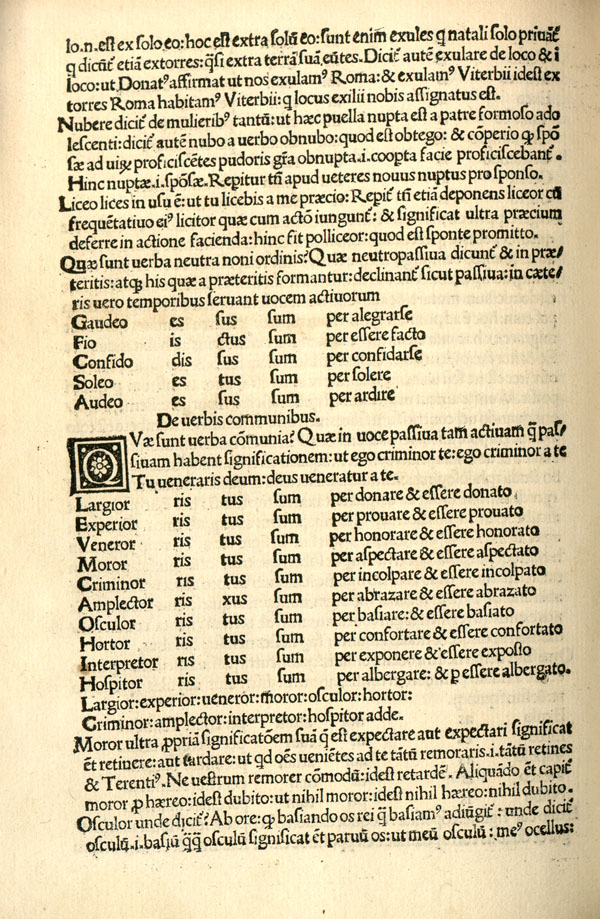 lo.n.eſt ex ſolo eo: hoc eſt extra ſolū eo: ſunt enim exules q natali ſolo priuāt̄
q dicūt̄ etiā extorres: q̄ſi extra terrā ſuā eūtes. Dicit̄ autē exulare de loco & ī
loco: ut Donatꝰ affirmat ut nos exulamꝰ Roma: & exulamꝰ Viterbii ideſt ex
torres Roma habitamꝰ Viterbii: q locus exilii nobis aſſignatus eſt.
Nubere dicit̄ de mulieribꝰ tantū: ut hæc puella nupta eſt a patre formoſo ado
leſcenti: dicit̄ autē nubo a uerbo obnubo: quod eſt obtego: & cōperio ꝙ ſpō
ſæ ad uiꝝ proficiſcētes pudoris gr̄a obnupta.i.coopta facie proficiſcebant̄.
Hinc nuptæ.i.ſpōſæ. Repitur tn̄ apud ueteres nouus nuptus pro ſponſo.
Liceo lices in uſu ē: ut tu licebis a me præcio: Repit̄ tn̄ etiā deponens liceor cū
frequētatiuo eiꝰ licitor quæ cum actō iungunt̄: & ſignificat ultra præcium
deferre in actione facienda: hinc fit polliceor: quod eſt ſponte promitto.
Quæ ſunt uerba neutra noni ordinis? Quæ neutropaſſiua dicunt̄ & in præ/
teritis: atqꝫ his quæ a præteritis formantur: declinant̄ ſicut paſſiua: in cæte/
ris uero temporibus ſeruant uocem actiuorum
Gaudeo es ſus ſum per alegrarſe
Fio is ctus ſum per eſſere facto
Confido dis ſus ſum per confidarſe
Soleo es tus ſum per ſolere
Audeo es ſus ſum per ardire
De uerbis communibus.
QVæ ſunt uerba cōmunia? Quæ in uoce paſſiua tam actiuam q̄ paſ/
ſiuam habent ſignificationem: ut ego criminor te: ego criminor a te
Tu ueneraris deum: deus ueneratur a te.
Largior ris tus ſum per donare & eſſere donato
Experior ris tus ſum per prouare & eſſere prouato
Veneror ris tus ſum per honorare & eſſere honorato
Moror ris tus ſum per aſpectare & eſſere aſpectato
Criminor ris tus ſum per incolpare & eſſere incolpato
Amplector ris xus ſum per abrazare & eſſere abrazato
Oſculor ris tus ſum per baſiare: & eſſere baſiato
Hortor ris tus ſum per confortare & eſſere confortato
Interpretor ris tus ſum per exponere & eſſere expoſto
Hoſpitor ris tus ſum per albergare: & ꝑ eſſere albergato.
Largior: experior: ueneror: moror: oſculor: hortor:
Criminor: amplector: interpretor: hoſpitor adde.
Moror ultra ꝓpriā ſignificatōem ſuā q̄ eſt expectare aut expectari ſignificat
ēt retinere: aut tardare: ut qd oēs ueniētes ad te tātū remoraris.i.tātū retines
& Terentiꝰ. Ne ueſtrum remorer cōmodū: ideſt retardē. Aliquādo ēt capit̄
moror ꝓ hæreo: ideſt dubito: ut nihil moror: ideſt nihil hæreo: nihil dubito.
Oſculor unde dicit̄? Ab ore: ꝙ baſiando os rei q̄ baſiamꝰ adiūgit̄: unde dicit̄
oſculū.i.baſiū q̄q̄ oſculū ſignificat ēt paruū os: ut meū oſculū: meꝰ ocellus: